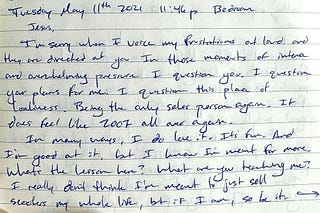 Tuesday May 11th 2021 11:46p Bedroom
Jesus,
I'm sorry when I voice my frustrations at loud and
they are directed at you. In those moments of intense
and overwhelming pressure I question you. I question
your plans for me. I question this place of
loneliness. Being the only sales person again. It
does feel like 2007 all over again.
In many ways, I do love it. Its fun. And
I'm good at it, but I know I'm meant for more.
What's the lesson here? What are you teaching me?
I really don't think I'm meant to just sell
my whole life, but if I am, so be it. →